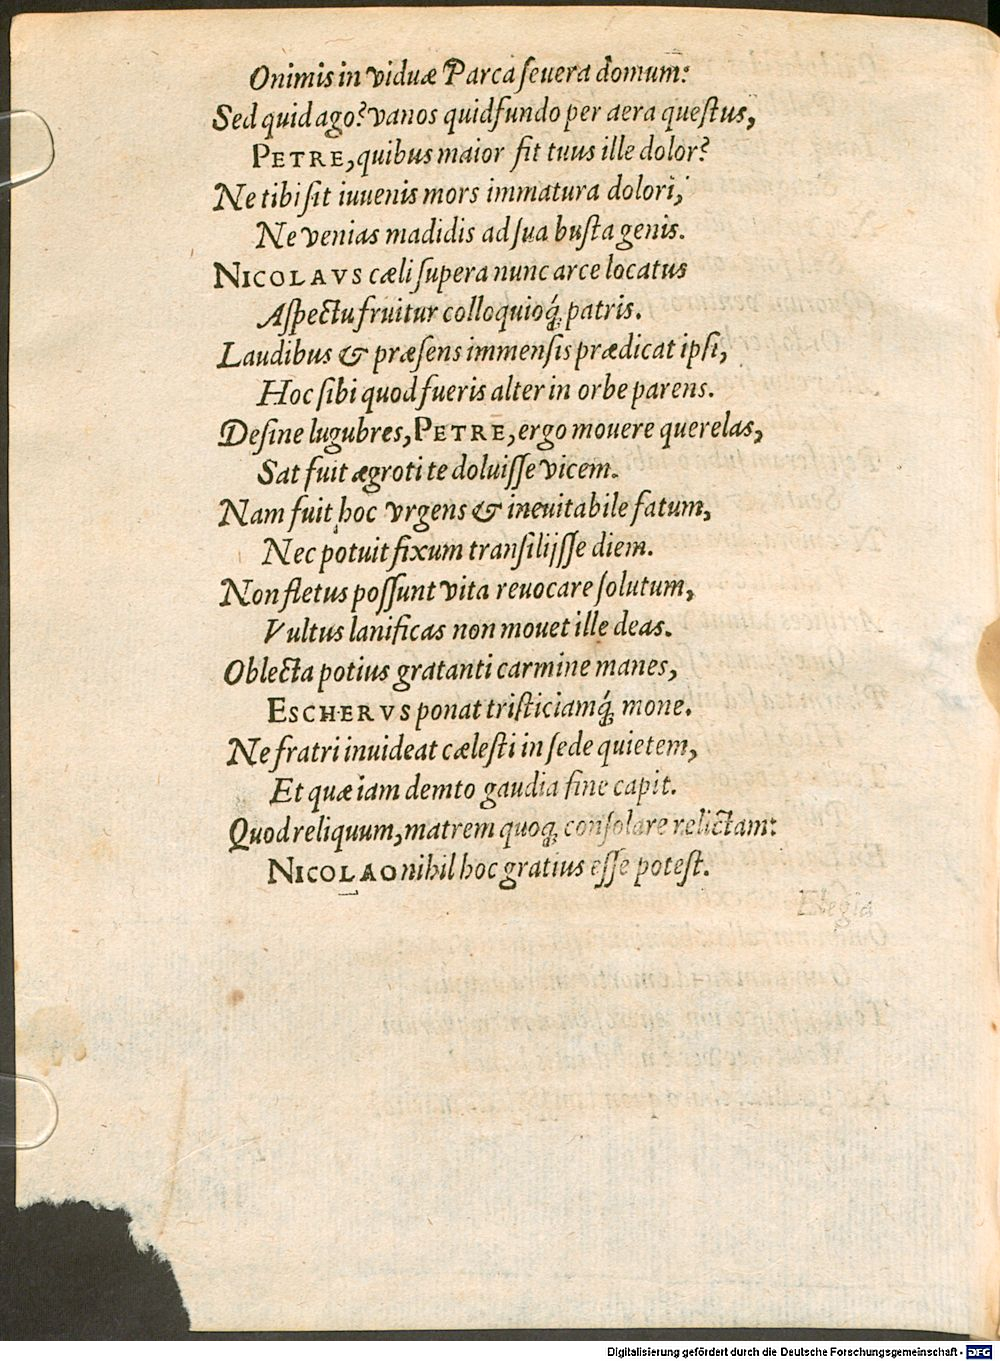 Onimis in viduæ Parca seuera domum:
Sed quid ago? vanos quid fundo per aera questus,
PETRE, quibus maior fit tuus ille dolor?
Ne tibi sit iuuenis mors immatura dolori,
Ne venias madidis ad sua busta genis.
NICOLAVS cæli supera nunc arce locatus
Aspectu fruitur colloquioq́; patris.
Laudibus & præsens immensis prædicat ipsi,
Hoc sibi quod fueris alter in orbe parens.
Desine lugubres, PETRE, ergo mouere querelas,
Sat fuit ægroti te doluisse vicem.
Nam fuit hoc vrgens & ineuitabile fatum,
Nec potuit fixum transilijsse diem.
Non fletus possunt vita reuocare solutum,
Vultus lanificas non mouet ille deas.
Oblecta potius gratanti carmine manes,
ESCHERVS ponat tristiciamq́; mone.
Ne fratri inuideat cælesti in sede quietem,
Et quæ iam demto gaudia fine capit.
Quod reliquum, matrem quoq; consolare relictam:
NICOLAO nihil hoc gratius esse potest.
Elegia
Digitalisierung gefördert durch die Deutsche Forschungsgemeinschaft - DFG